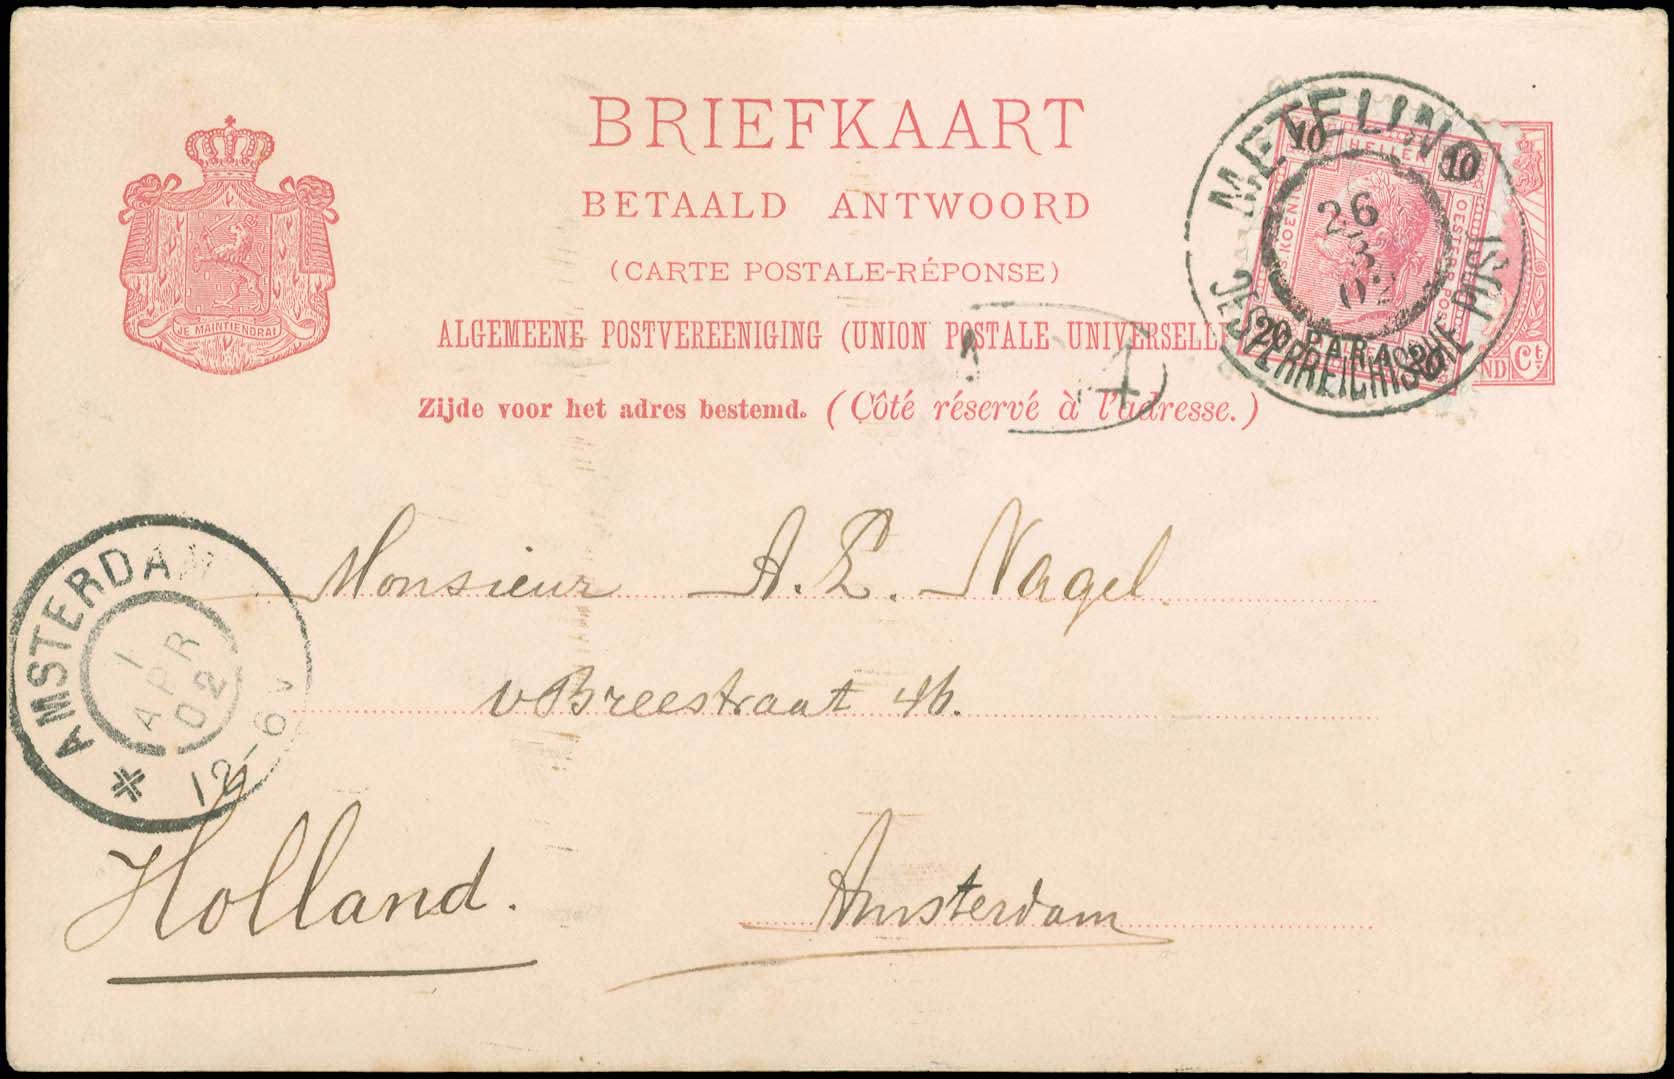 BRIEFKAART
BETAALD ANTWOORD
(CARTE POSTALE-RÉPONSE)
ALGEMEENE POSTVEREENIGING (UNION POSTALE UNIVERSELL
Zijde voor het adres bestemd. (Côté réservé à l'adresse.)
JE MAINTIENDRAI
METELINO
10 HELLER 10
26
3
02
20 PARA 20
OESTERREICHISCHE POST
ND Ct
AMSTERDAM
1
APR
02
12-6V
Monsieur A. E. Nagel.
v Breestraat 46.
Holland.
Amsterdam